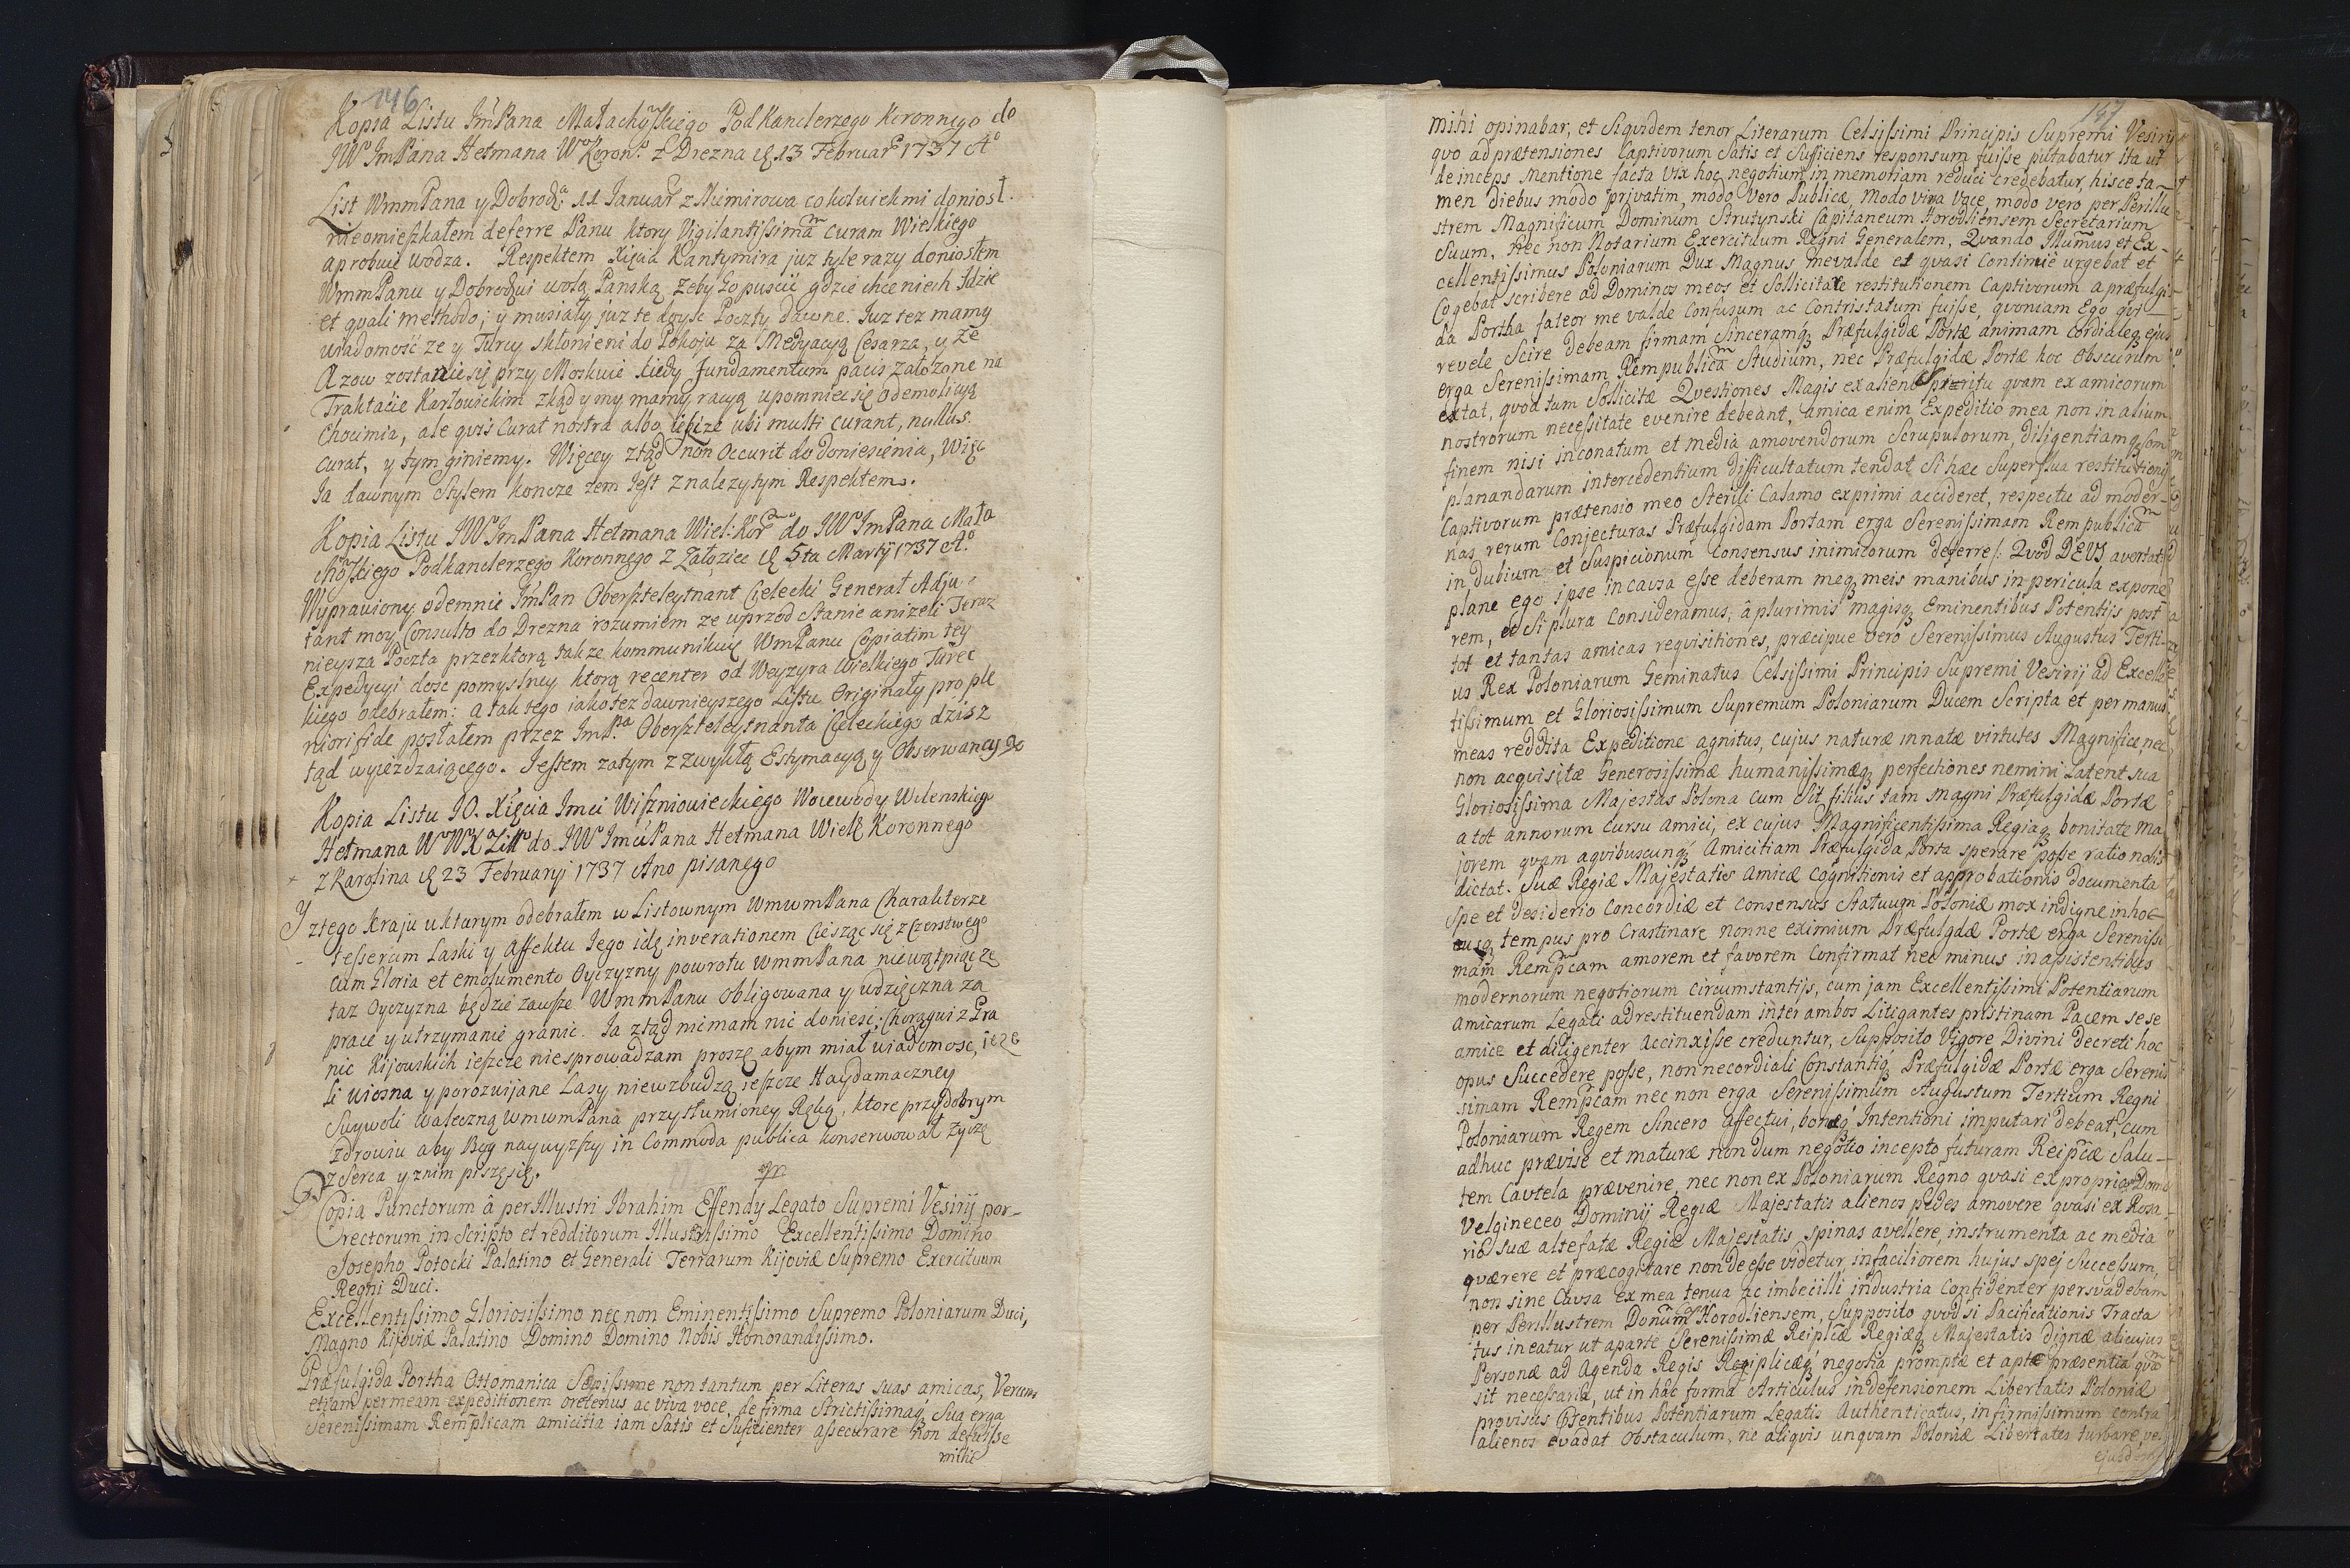 146
Kopia Listu JmPana Małachoskiego PodKanclerzego Koronnego do
JW JmPana Hetmana W Koron. z Drezna d 13 Februar 1737 Ao
List WmmPana y Dobrodz. 11 Januar z Niemirowa cokolwiek mi doniosł.
nieomieszkałem deferre Panu ktory Vigilantissimam curam Wielkiego
aprobuie wodza. Respektem Xięcia Kantymira juz tyle razy doniosłem
WmmPanu y Dobrodzieiowi wolą Panską zeby Go puscić gdzie chce niech Jdzie
et quali methodo; y musiały juz te dojsc Poczty dawne. Juz tez mamy
wiadomość ze y Turcy skłonieni do Pokoju za Medyacyą Cesarza, y ze
Azow zostanie się przy Moskwie kiedy Fundamentum pacis załozone na
Traktacie Karłowickim zkąd y my mamy racyą upomniec się o demolicyą
Chocimia, ale quis curat nostra albo ubi multi curant, nullus
curat, y tym giniemy. Więcey ztąd non occurit do doniesienia, Więc
Ja dawnym Stylem koncze zem Jest z nalezytym Respektem.
Kopia Listu JW JmPana Hetmana Wiel: Kor do JW JmPana Mała
choskiego Podkanclerzego Koronnego z Załoziec d 5ta Martij 1737 Ao
Wyprawiony odemnie JmPan Oberszteleytnant Cielecki Generał Adju-
tant moy Consulto do Drezna rozumiem ze wprzod stanie anizeli Teraz
nieysza Poczta przez ktorą takze kommunikuię WmPanu Copiatim tey
Expedycyi dosc pomyslney ktorą recenter od Wezyra Wielkiego Turec
kiego odebrałem: a tak tego iako tez dawnieyszego Listu Originały pro ple
niori fide posłałem przez JmPa Oberszteleytnanta Cieleckiego dzis z
tąd wyiezdzaiącego. Jestem zatym z zwykłą Estymacyą y Obserwancyą
Kopia Listu JO. Xięcia Jmci Wiszniowieckiego Woiewody Wilenskiego
Hetmana W WX Litt do JW Jmci Pana Hetmana Wielk Koronnego
z Karolina d 23 Februarij 1737 Ano pisanego
Y z tego kraju w ktorym odebrałem w Listownym WmwmPana Charakterze
tesseram Laski y Affektu Jego idę in verationem Ciesząc się z Czerstwego
cum Gloria et emolumento Oyczyzny powrotu WmmPana niewątpiąc ze
taz Oyczyzna będzie zawsze WmmPanu obligowana y wdzięczna za
pracę y utrzymanie granic. Ja ztąd nie mam nic doniesc; Chorągwi z Gra
nic Kijowskich ieszcze nie sprowadzam proszę abym miał wiadomosc, ieze
li wiosna y porozwijane Lasy niewzbudzą ieszcze Haydamaczney
Swywoli waleczną WmwmPana przytłumioney Ręką, ktore przy dobrym
zdrowiu aby Bog naywyzszy in Commoda publica konserwował zyczę
z Serca y z nim piszę się.
Copia Punctorum à perIllustri Ibrahim Effendy Legato Supremi Vesirij por-
rectorum in Scripto et redditorum Illustrissimo Excellentissimo Domino
Josepho Potocki Palatino et Generali Terrarum Kijoviæ Supremo Exercituum
Regni Duci.
Excellentissimo Gloriosissimo nec non Eminentissimo Supremo Poloniarum Duci,
Magno Kijoviæ Palatino Domino Domino Nobis Honorandissimo.
Præfulgida Portha Ottomanica Sæpissime non tantum per Literas suas amicas, Verum
etiam per meam expeditionem oretenus ac viva voce, de firma Strictissimaq Sua erga
Serenissimam Remplicam amicitia iam Satis et Sufficienter assecurare non defuisse
mihi
147
mihi opinabar, et Siquidem tenor Literarum Celsissimi Principis Supremi Vesirij
quo ad prætensiones Captivorum Satis et Sufficiens responsum fuisse putabatur ita ut
deinceps Mentione facta vix hoc negotium in memoriam reduci credebatur, hisce ta-
men diebus modo privatim, modo Vero Publicæ, Modo viva voce, modo vero per Perillu
strem Magnificum Dominum Strutynski Capitaneum Horodliensem Secretarium
Suum, nec non Notarium Exercituum Regni Generalem, Quando Illumus et Ex-
cellentissimus Poloniarum Dux Magnus me valde et quasi continuè urgebat et
Cogebat scribere ad Dominos meos et Sollicitare restitutionem Captivorum a præfulgi-
da Portha fateor me valde Confusum ac Contristatum fuisse, quoniam Ego qui
revele Scire debeam firmam Sinceramq Præfulgidæ Portæ animam cordialeq ejus
erga Serenissimam Rempublicam Studium, nec Præfulgidæ Portæ hoc obscurum
extat, quod tam Sollicitæ Quæstiones Magis ex alieno Spiritu quam ex amicorum
nostrorum necessitate evenire debeant, amica enim Expeditio mea non in alium
finem nisi in conatum et media amovendorum Scrupulorum, diligentiamq com
planandarum intercedentium difficultatum tendat Si hæc Superflua restitutionis
Captivorum prætensio meo Sterili Calamo exprimi accideret, respectu ad moder-
nas rerum Conjecturas Præfulgidam Portam erga Serenissimam Rempublicam
in dubium et Suspicionum Consensus inimicorum deferre /: Quod DEUS avertat
plane ego ipse in causa esse deberam meq meis manibus in pericula expone
rem, et Si plura Consideramus, â plurimis magisq Eminentibus Potentijs post
tot et tantas amicas requisitiones, præcipue vero Serenissimus Augustus Terti-
us Rex Poloniarum Geminatus Celsissimi Principis Supremi Vesirij ad Excell
tissimum et Gloriosissimum Supremum Poloniarum Ducem Scripta et per manus
meas reddita Expeditione agnitus, cujus naturæ innatæ virtutes Magnificæ, nec
non acquisitæ Generosissimæ humanissimæq perfectiones nemini Latent sua
Gloriosissima Majestas Polona cum Sit filius tam magni Præfulgidæ Portæ
a tot annorum cursu amici, ex cujus Magnificentissima Regiaq bonitate ma
jorem quam a quibuscunq Amicitiam Præfulgida Porta sperare posse ratio nobis
dictat. Suæ Regiæ Majestatis amicæ cognitionis et approbationis documenta
Spe et desiderio Concordiæ et Consensus Statuum Poloniæ mox indigne in hoc
usq tempus pro Crastinare nonne eximium Præfulgdæ Portæ erga Serenissi
mam Rempcam amorem et favorem Confirmat nec minus in assistentibus
modernorum negotiorum Circumstantijs, cum jam Excellentissimi Potentiarum
Amicarum Legati ad restituendam inter ambos Litigantes pristinam Pacem sese
amice et diligenter accinxisse creduntur, Supposito Vigore Divini Decreti hoc
opus Succedere posse, non ne cordiali Constantiq Præfulgidæ Portæ erga Serenis
simam Rempcam nec non erga Serenissimum Augustum Tertium Regni
Poloniarum Regem Sincero affectui, bonæq Intentioni imputari debeat, cum
adhuc prævise et maturæ non dum negotio incepto futuram Reipcæ Salu-
tem Cautela prævenire, nec non ex Poloniarum Regno quasi ex propria Domo
Vel gineceo Dominij Regiæ Majestatis alienos pedes amovere quasi ex Rosa-
rio suæ altefatæ Regiæ Majestatis spinas avellere, instrumenta ac media
quærere et præcogitare non deesse videtur, in faciliorem hujus spei Successum,
non sine Causa ex mea tenua ac imbecilli industria Confidenter persvadebam
per Perillustrem Donum Horodliensem, Supposito quod si Pacificationis Tracta
tus ineatur ut a parte Serenissimæ Reiplcæ Regiæq Majestatis dignæ alicujus
Personæ ad Agenda Regis Reiplicæq negotia promptæ et aptæ præsentia quam
sit necessaria, ut in hâc forma Articulus in defensionem Libertatis Poloniæ
provisus Potentibus Potentiarum Legatis Authenticatus, in firmissimum contra
alienos evadat obstaculum, ne aliquis unquam Poloniæ Libertates turbare, vel
ejusd